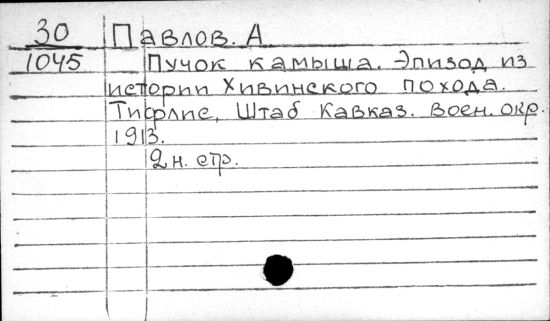 30 Павлов. А
1045 Пучок камыша. Эпизод из
истории Хивинского похода.
Тифлис, Штаб Кавказ. Воен. окр.
1913.
2 н. стр.